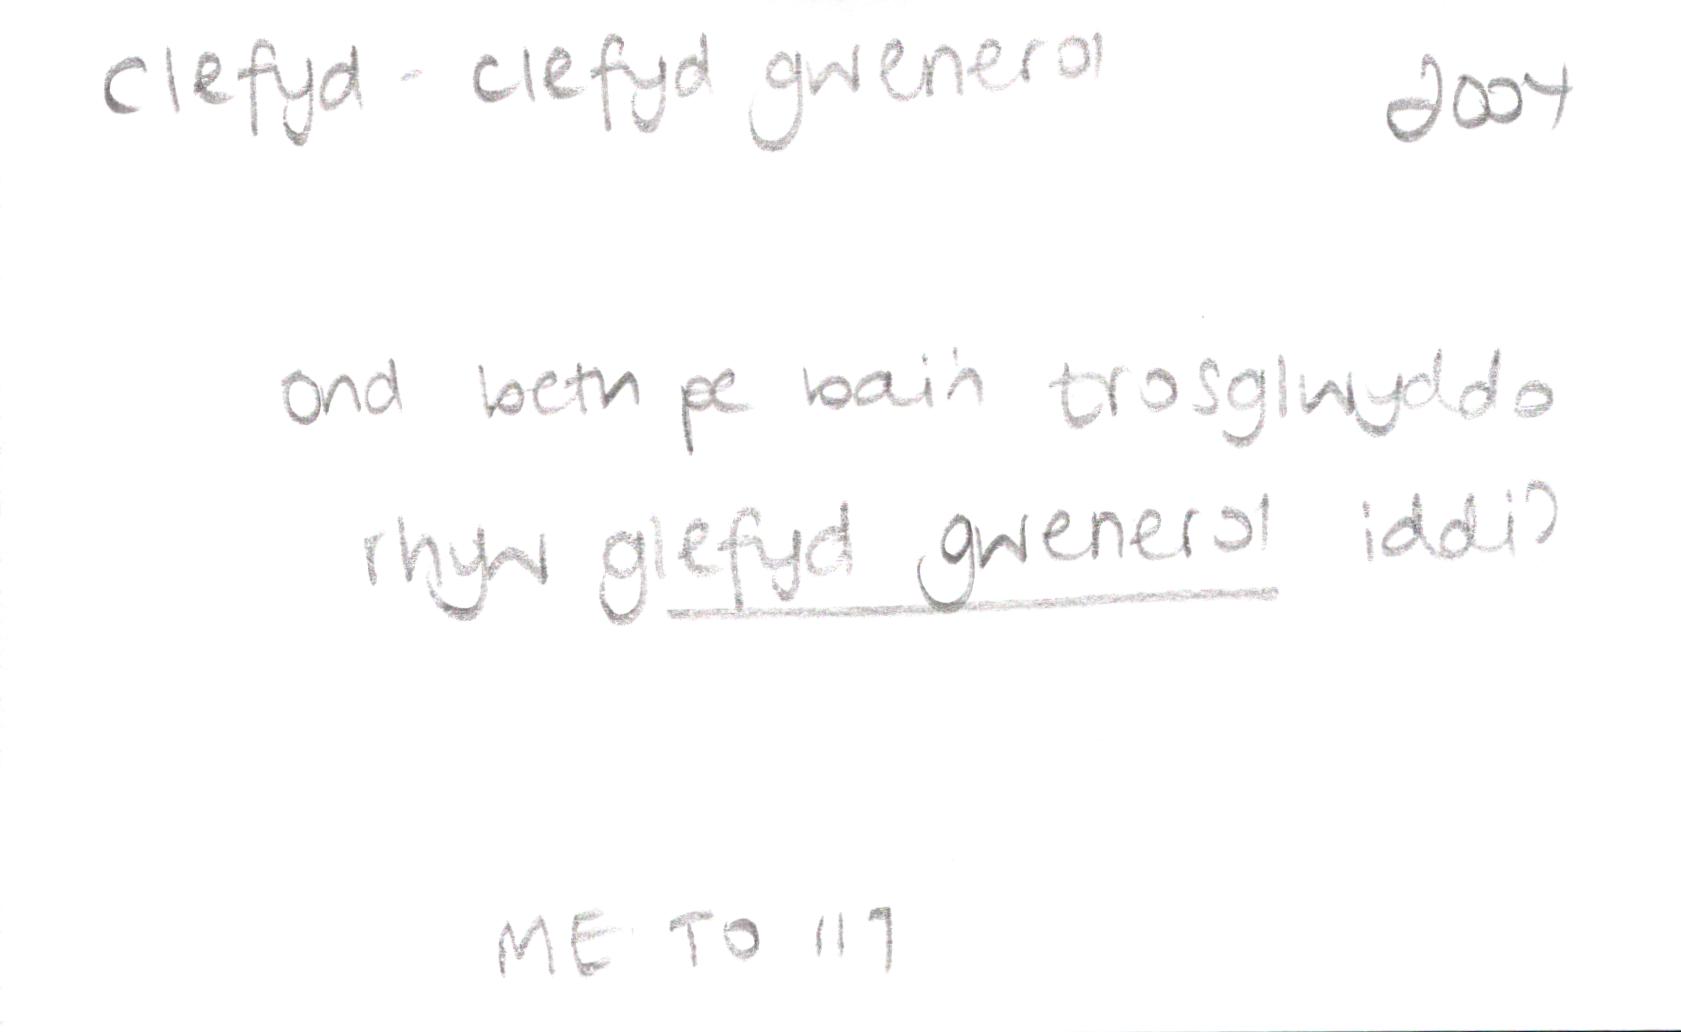 clefyd - clefyd gwenerol 2004
ond beth pe bai'n trosglwyddo
rhyw glefyd gwenerol iddi?
ME TO 117